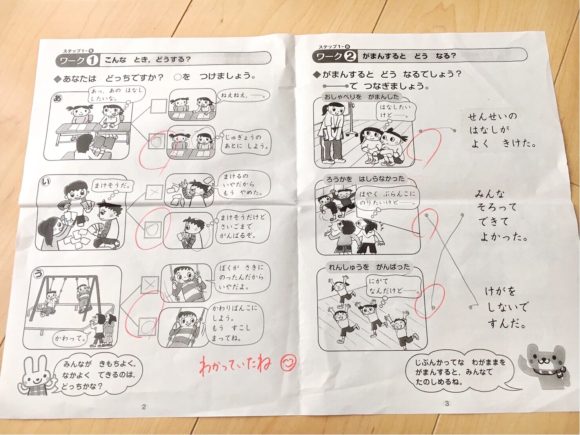 ステップ1-⑤
ワーク1 こんな とき、どうする?
◆あなたは どっちですか? ○を つけましょう。
あ
あっ、あの はなし
したいな。
ねえねえ、
じゅぎょうの
あとに しよう。
い
まけそうだ。
まけるの
いやだから
もう やめた。
まけそうだけど
さいごまで
がんばるぞ。
う
かわって。
ぼくが さきに
のったんだから
いやだよ。
かわりばんこに
しよう。
もう すこし
まってね。
みんなが きもちよく、
なかよく できるのは、
どっちかな?
わかっていたね
2
ステップ1-⑤
ワーク2 がまんすると どう なる?
◆がまんすると どう なるでしょう?
で つなぎましょう。
おしゃべりを がまんした
はなしたい
けど…
せんせいの
はなしが
よく きけた。
ろうかを はしらなかった
はやく ぶらんこに
のりたいけど…
みんな
そろって
できて
よかった。
れんしゅうを がんばった
にがて
なんだけど…
けがを
しないで
すんだ。
じぶんかってな わがままを
がまんすると、みんなで
たのしめるね。
3